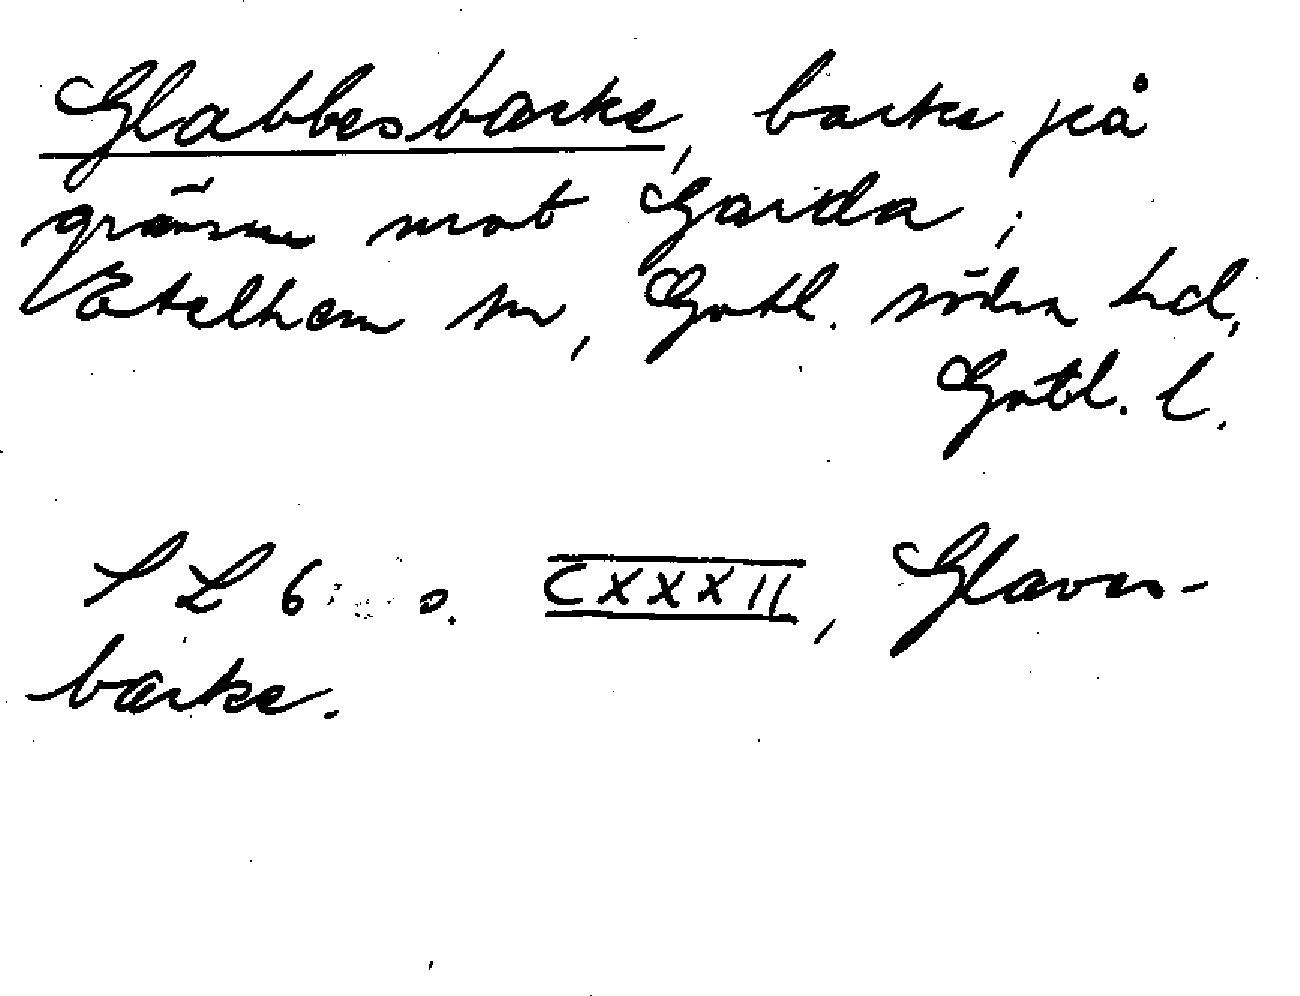 Glabbesbacke, backe på
gränsen mot Garda,
Etelhem sn, Gotl. södra hd,
Gotl. l.
S L 6 s. CXXXII, Glaves-
backe.